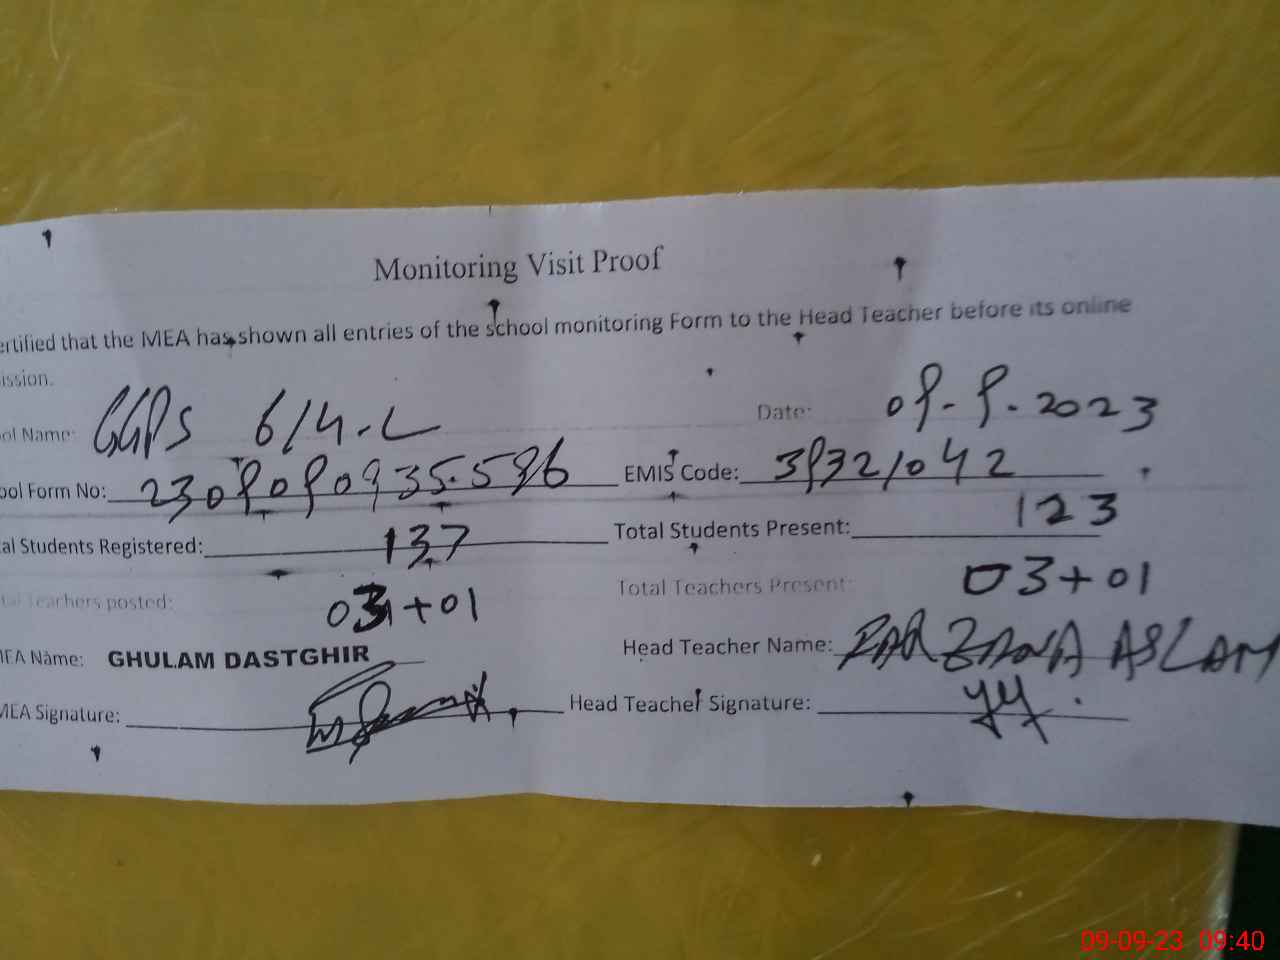 Monitoring Visit Proof
ertified that the MEA has shown all entries of the school monitoring Form to the Head Teacher before its online
ission.
ool Name: GGPS 6/4-L Date: 09-9-2023
ool Form No: 2309090935596 EMIS Code: 39321042
al Students Registered: 137 Total Students Present: 123
tal Teachers posted: 03+01 Total Teachers Present: 03+01
MEA Name: GHULAM DASTGHIR Head Teacher Name: FARZANA ASLAM
MEA Signature: Head Teacher Signature:
09-09-23 09:40